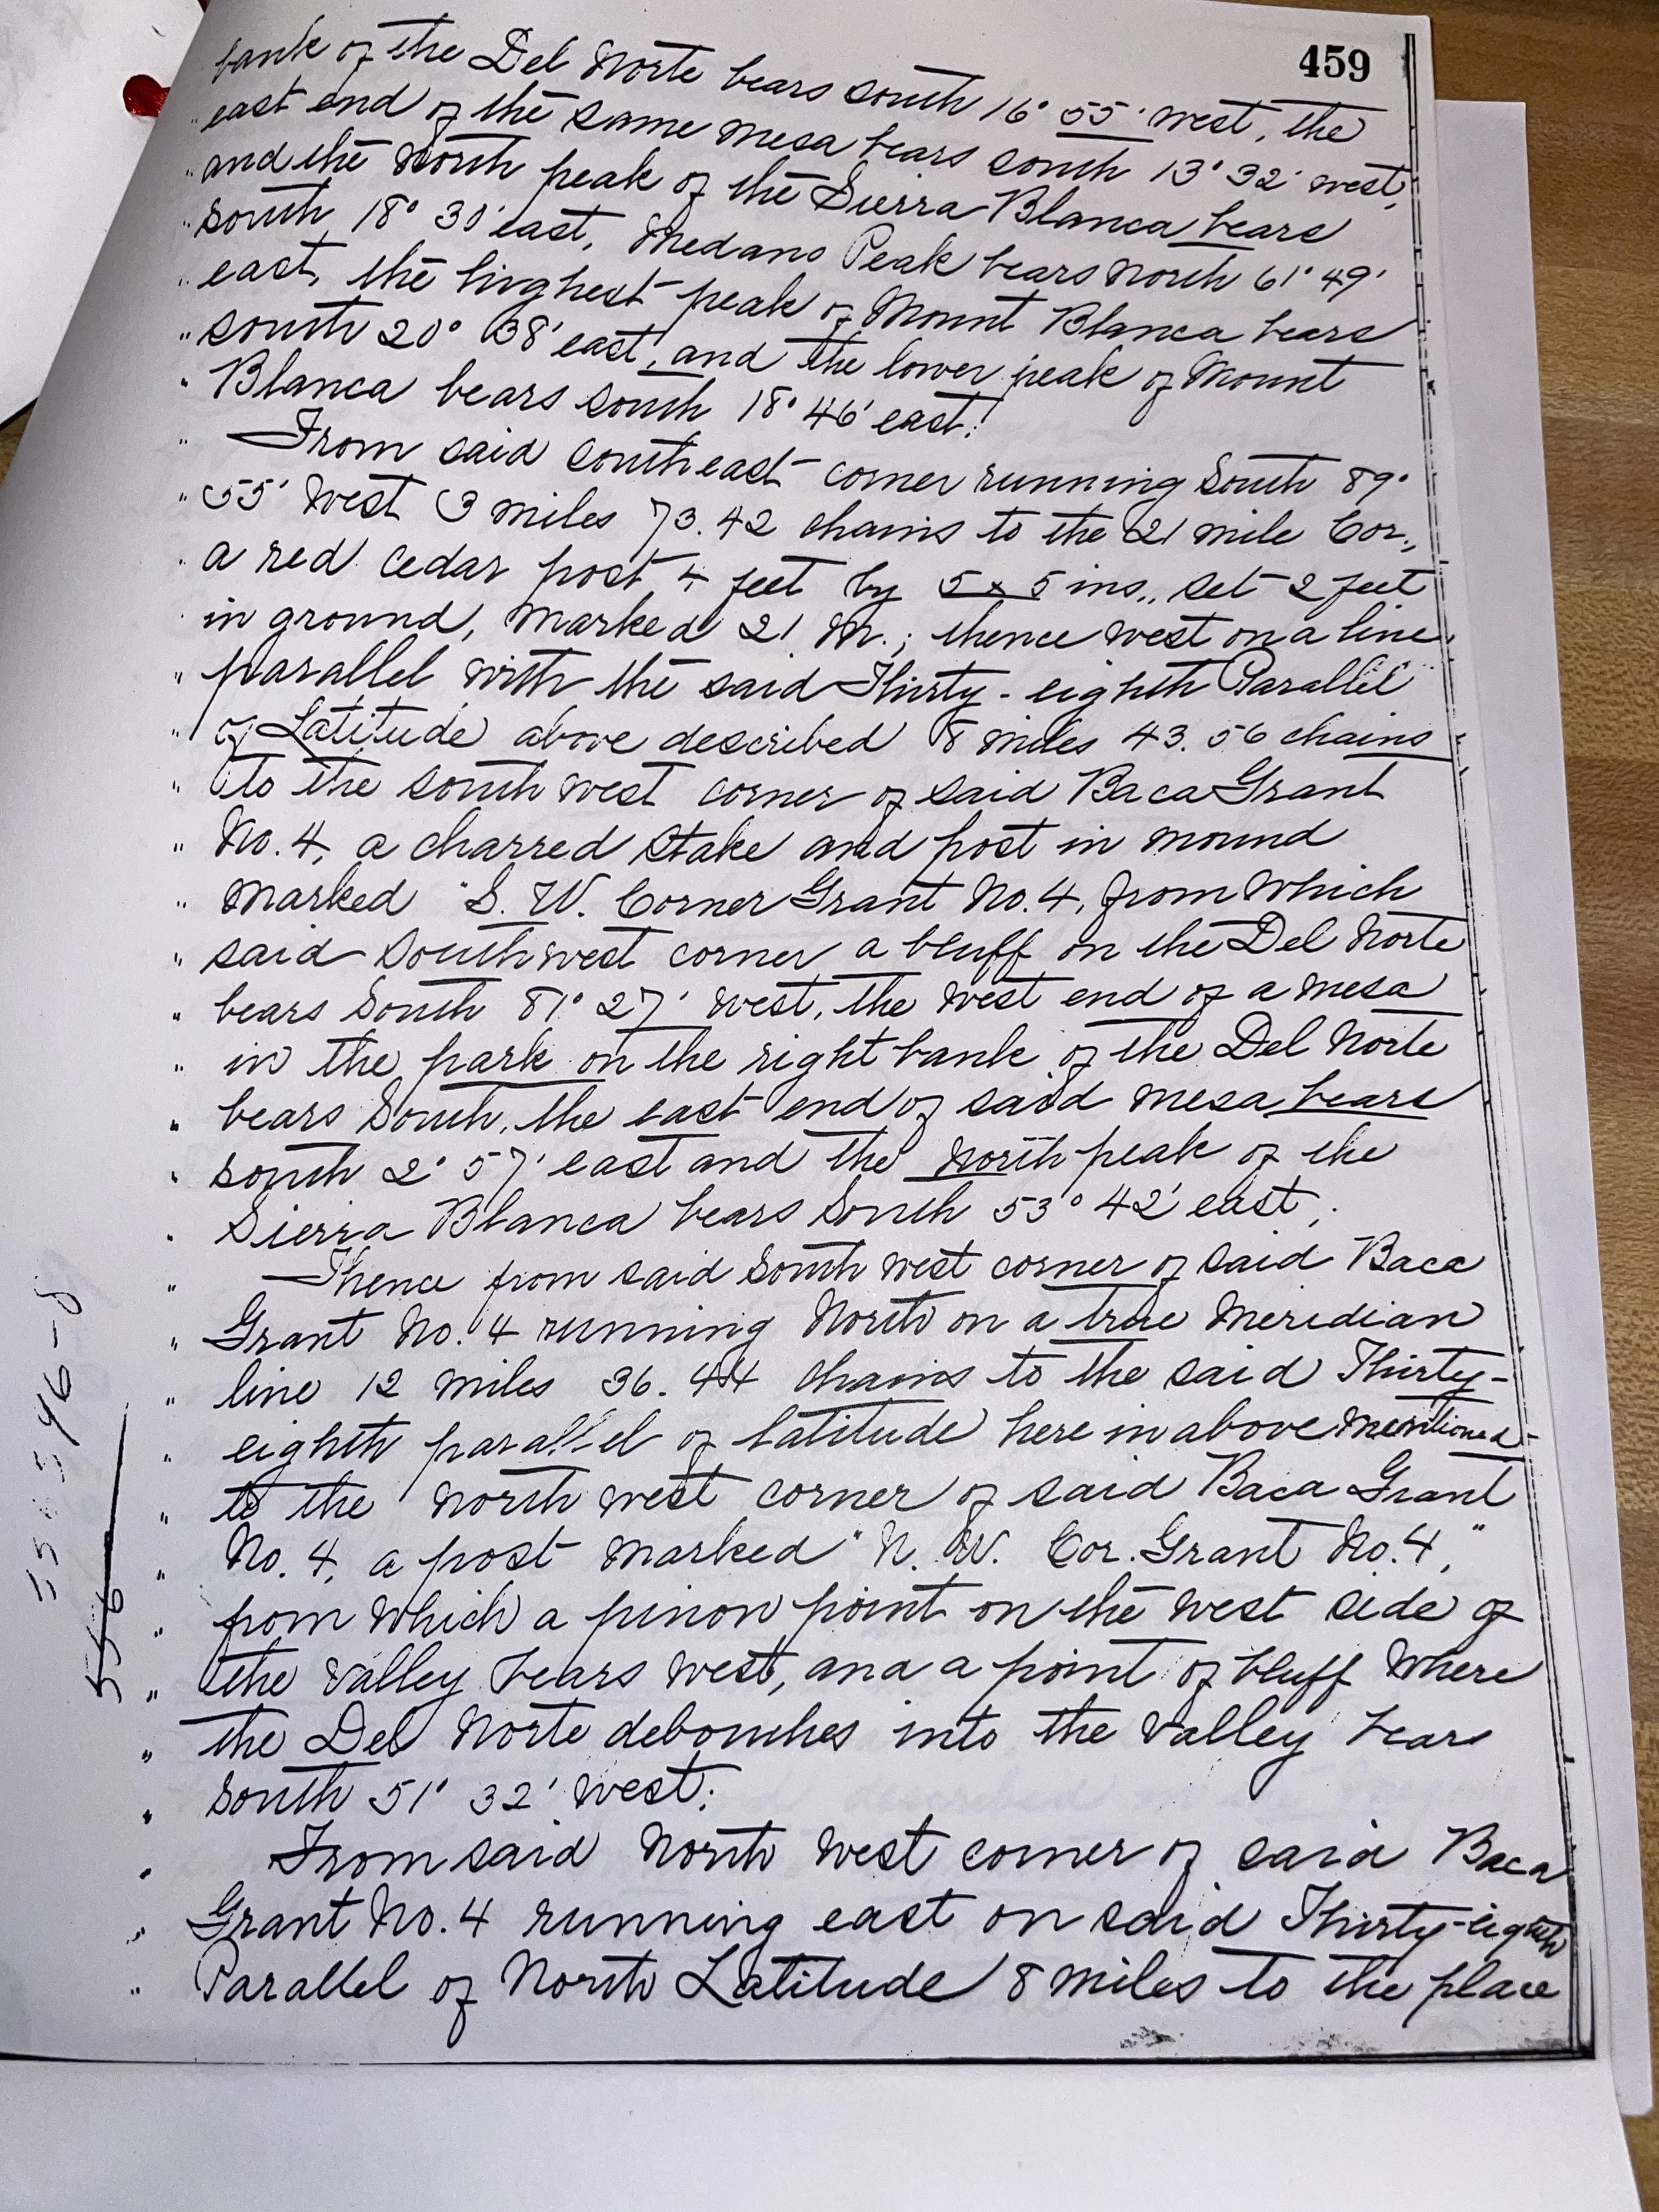 459
bank of the Del Norte bears south 16° 55' west, the
" east end of the same mesa bears south 13° 32' west,
" and the North peak of the Sierra Blanca bears
" south 18° 30' east, Medano Peak bears North 61° 49'
" east, the highest peak of Mount Blanca bears
" south 20° 38' east, and the lower peak of Mount
" Blanca bears south 18° 46' east;
" From said southeast corner running South 89°
" 55' West 3 miles 73.42 chains to the 21 mile Cor.,
" a red cedar post 4 feet by 5 x 5 ins., set 2 feet
" in ground, marked 21 M.; thence west on a line
" parallel with the said Thirty-eighth Parallel
" of Latitude above described 8 miles 43.56 chains
" to the south west corner of said Baca Grant
" No. 4, a charred stake and post in mound
" marked "S. W. Corner Grant No. 4, from which
" said Southwest corner a bluff on the Del Norte
" bears South 81° 27' west, the west end of a mesa
" in the park on the right bank of the Del Norte
" bears South, the east end of said mesa bears
" south 2° 57' east and the North peak of the
" Sierra Blanca bears South 53° 42' east;
" Thence from said South west corner of said Baca
" Grant No. 4 running North on a true Meridian
" line 12 miles 36.44 chains to the said Thirty-
" eighth parallel of latitude here in above mentioned
" to the North west corner of said Baca Grant
" No. 4, a post marked "N. W. Cor. Grant No. 4,"
" from which a pinon point on the west side of
" the valley bears west, and a point of bluff where
" the Del Norte debouches into the valley bears
" South 51° 32' west;
" From said North West corner of said Baca
" Grant No. 4 running east on said Thirty-eighth
" Parallel of North Latitude 8 miles to the place